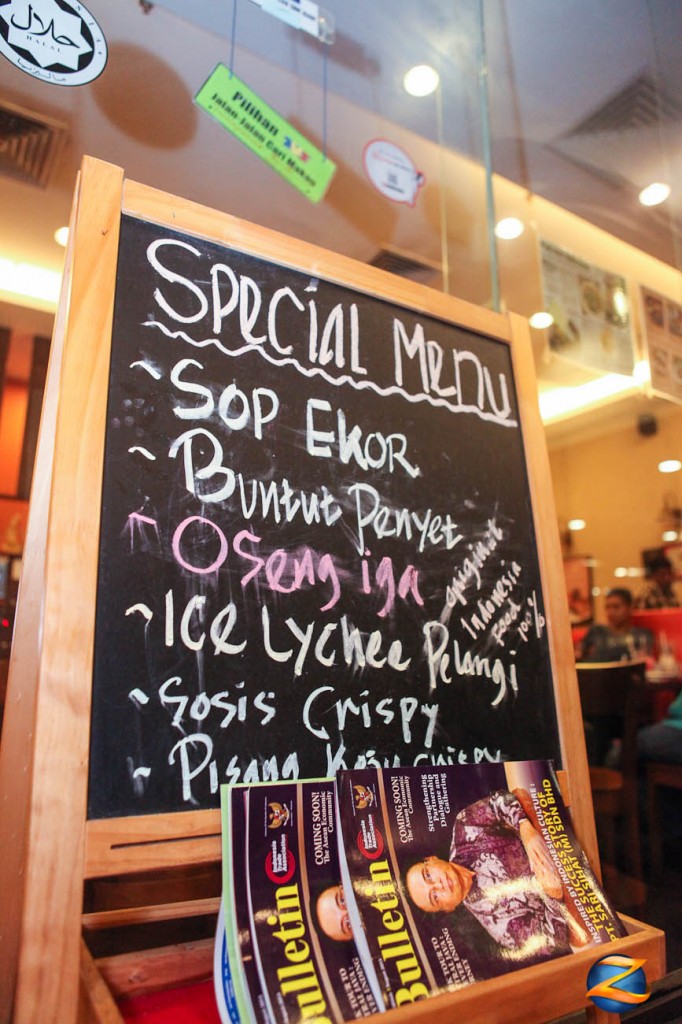 حلال
HALAL
Pilihan
Jalan-Jalan Cari Makan
Special Menu
~ Sop Ekor
~ Buntut Penyet
~ Oseng iga
original
Indonesia
food
100%
~ Ice Lychee Pelangi
~ Sosis Crispy
~ Pisang Keju crispy
COMING SOON!
The Asean Economic
Community
Indonesia
Trade
Association
Bulletin
COMING SOON!
The Asean Economic
Community
Strengthening
Partnership
Purpose and
Gathering
Bulletin
INSPIRED BY INDONESIAN CULTURE:
THE SUCCESS STORY OF
PT. SARI SIHAT (M) SDN BHD
Z